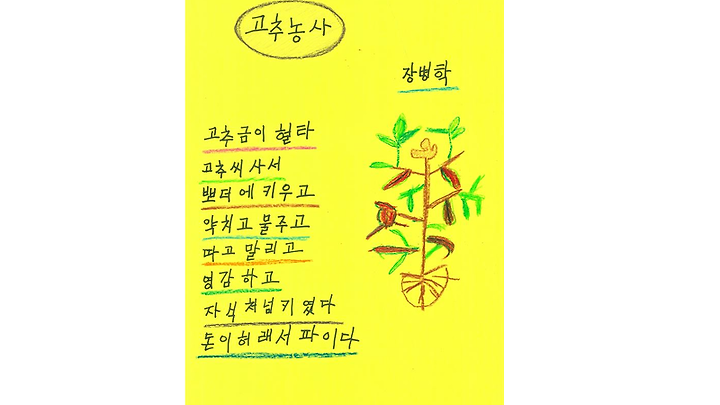 고추농사
장병학
고추금이 헐타
고추씨 사서
뽀더에 키우고
약치고 물주고
따고 말리고
영감하고
자식처넘키였다
돈이허래서 파이다